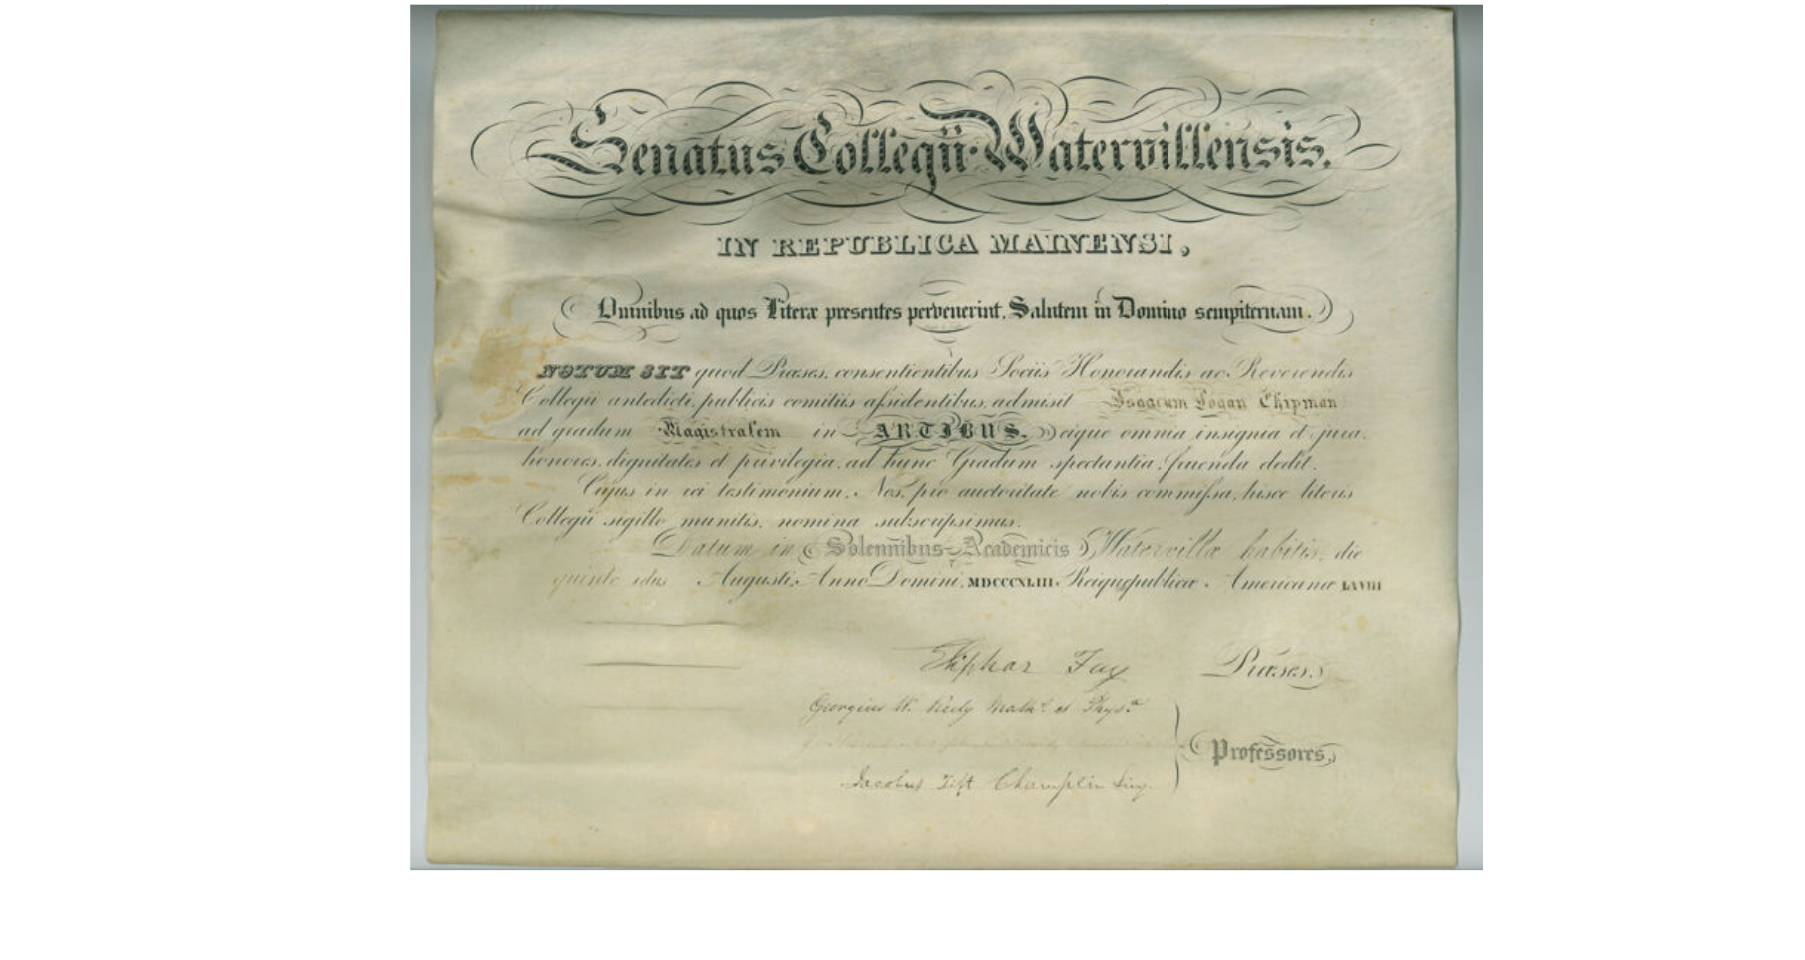 Senatus Collegii Watervillensis.
IN REPUBLICA MAINENSI,
Omnibus ad quos Literæ presentes pervenerint, Salutem in Domino sempiternam.
NOTUM SIT quod Præses, consentientibus Sociis Honorandis ac Reverendis
Collegii antedicti, publicis comitiis assidentibus, admisit Isaacum Logan Chipman
ad gradum Magistralem in ARTIBUS, eique omnia insignia et jura,
honores, dignitates et privilegia, ad hunc Gradum spectantia, fruenda dedit.
Cujus in rei testimonium, Nos, pro auctoritate nobis commissa, hisce literis
Collegii sigillo munitis, nomina subscripsimus.
Datum in Solennibus Academicis Watervillæ habitis, die
quinto idus Augusti, Anno Domini, MDCCCXLIII. Reiquepublicæ Americanæ LXVIII
Eliphaz Fay Præses.
Georgius W. Keely Math. et Phys.
Professores,
Jacobus Tift Champlin Ling.